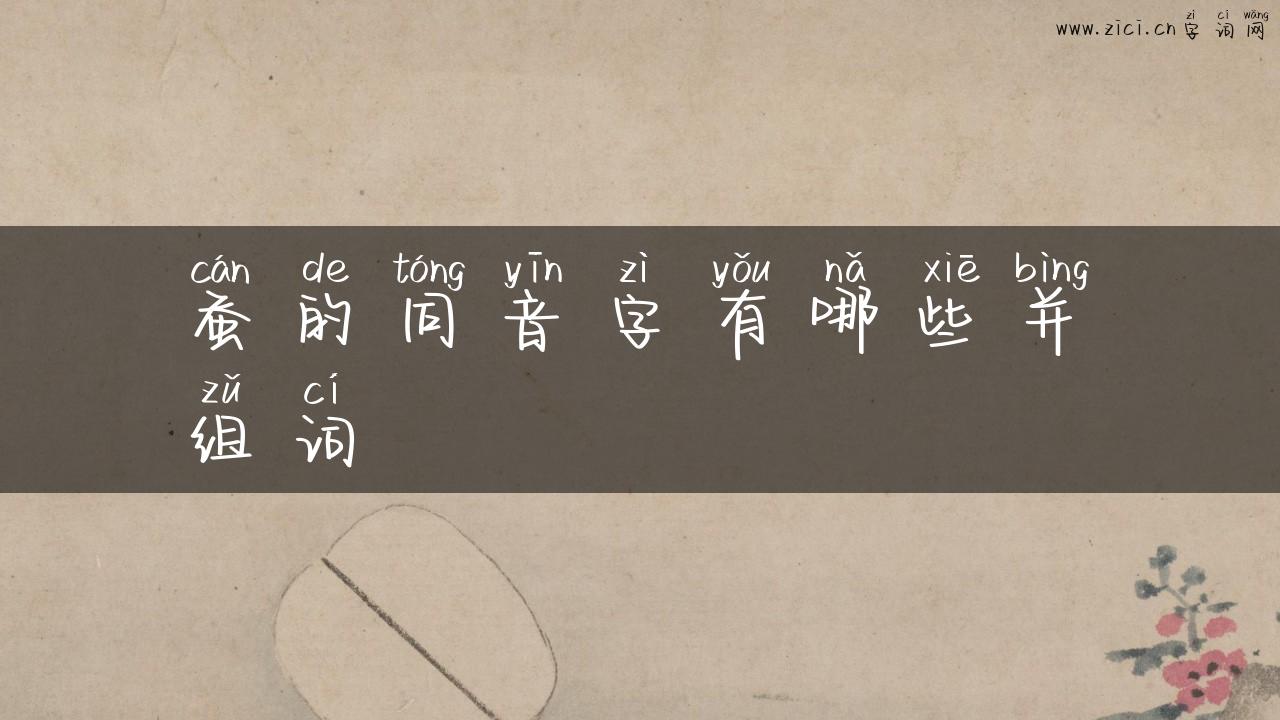 zì cí wǎng
www.zici.cn字词网
cán de tóng yīn zì yǒu nǎ xiē bìng
蚕的同音字有哪些并
zǔ cí
组词